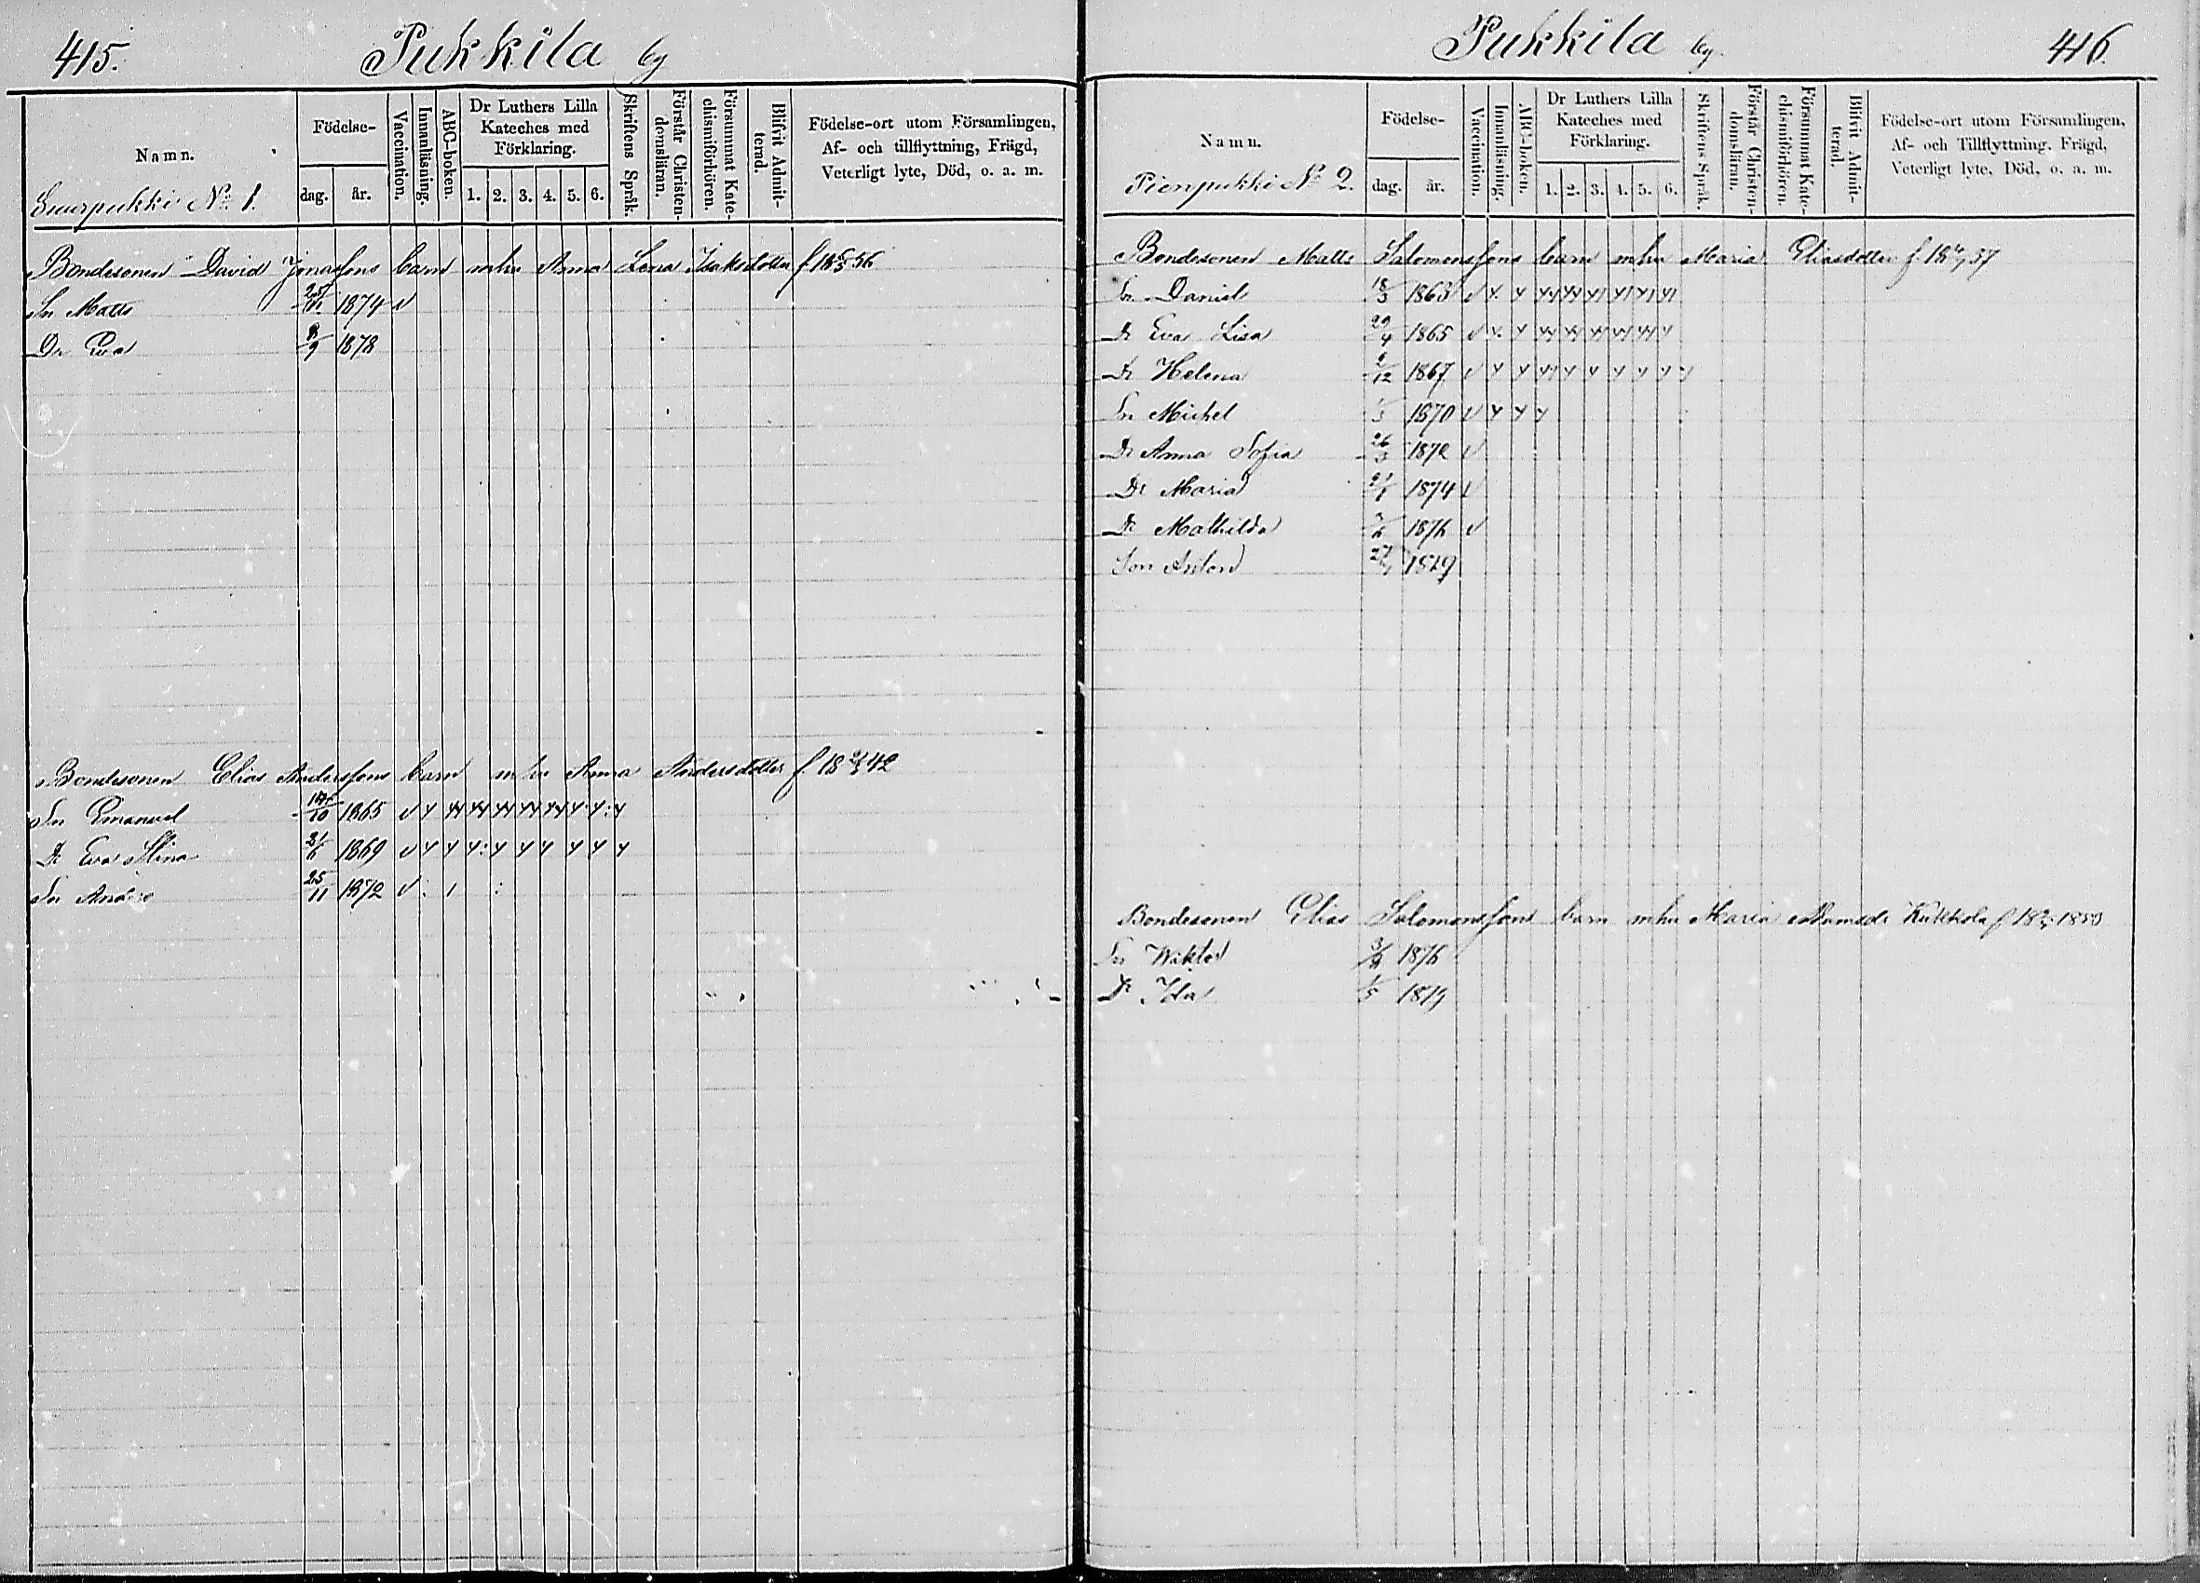 415. Pukkila by
Namn. Födelse- dag. år. Vaccination. Innanläsning. ABC-boken. Dr Luthers Lilla Kateches med Förklaring. 1. 2. 3. 4. 5. 6. Skriftens Språk. Förstår Christendomsläran. Försummat Katechismiförhören. Blifvit Admitterad. Födelse-ort utom Församlingen, Af- och tillflyttning, Frägd, Veterligt lyte, Död, o. a. m.
Suurpukki No 1.
Bondesonen David Jonassons barn mhu Anna Lena Isaksdotter f. 18 56
Sn Matts 1874
Dr Eva 8/9 1878
Bondesonen Elias Anderssons barn mhu Anna Andersdotter f. 18 42
Sn Emanuel 1865
Dr Eva Stina 21/6 1869
Sn Anders 25/11 1872
Pukkila by. 416
Namn. Födelse- dag. år. Vaccination. Innanläsning. ABC-boken. Dr Luthers Lilla Kateches med Förklaring. 1. 2. 3. 4. 5. 6. Skriftens Språk. Förstår Christendomsläran. Försummat Katechismiförhören. Blifvit Admitterad. Födelse-ort utom Församlingen, Af- och Tillflyttning. Frägd, Veterligt lyte, Död, o. a. m.
Pienpukki No 2.
Bondesonen Matts Salomonssons barn mhu Maria Eliasdotter f. 18 37
Sn Daniel 18/3 1863
Dr Eva Lisa 29/4 1865
Dr Helena 1867
Sn Michel 1870
Dr Anna Sofia 26/3 1872
Dr Maria 21/1 1874
Dr Mathilda 1876
Son Anton 1879
Bondesonen Elias Salomonssons barn mhu Maria Kukkola f. 1850
Sn Wiktor 1876
Dr Ida 1879